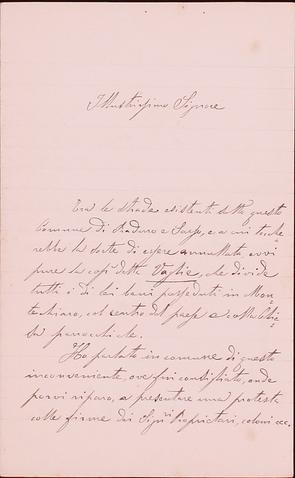 Illustrissimo Signore
Tra le strade esistenti sotto questo
Comune di e Sarpo, e a cui tocche=
rebbe la sorte di essere annullata evvi
pure la così detta Vaglie, che divide
tutti i di lei beni posseduti in Mon=
techiaro, col centro del paese e colla Chie=
sa parrocchiale.
Ho parlato in comune di questo
inconveniente, ove fui consigliato, onde
porvi riparo, a presentare una protesta
colle firme dei Sigri Proprietari, coloni ecc.